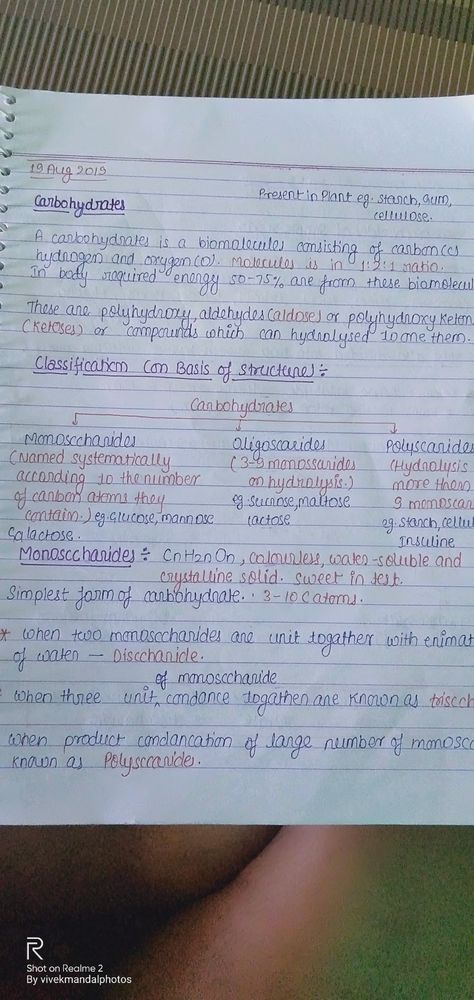 19 Aug 2019
Present in Plant eg. starch, Gum,
cellulose.
Carbohydrates
A carbohydrates is a biomolecules consisting of carbon(c)
hydrogen and oxygen(o). Molecules is in 1:2:1 ratio.
In body required energy 50-75% are from these biomolecul
These are polyhydroxy, aldehydes (aldose) or polyhydroxy Keton
(Ketoses) or compounds which can hydrolysed to one them.
Classification (on Basis of structure) ÷
Carbohydrates
Monosccharides
(Named systematically
according to the number
of carbon atoms they
contain.) eg. Glucose, mannose
Galactose.
Oligoscarides
(3-9 monossarides
on hydrolysis.)
eg. sucrose, maltose
lactose
Polyscarides
(Hydrolysis
more them
9 monoscar
eg. starch, cellul
Insuline
Monosccharides ÷ CnH2nOn, colourless, water-soluble and
crystalline solid. sweet in test.
Simplest form of carbohydrate. 3-10 C atoms.
* when two monosccharides are unit togather with enimat
of water — Disccharide.
of monosccharide
when three unit, condance togather are known as triscch
when product condancation of large number of monoscc
known as Polysccarides.
R
Shot on Realme 2
By vivekmandalphotos